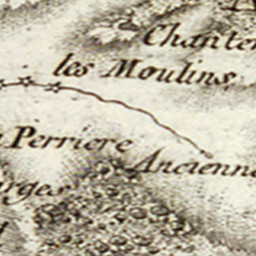 Chanter
les Moulins
Perriere
Ancienne
rges